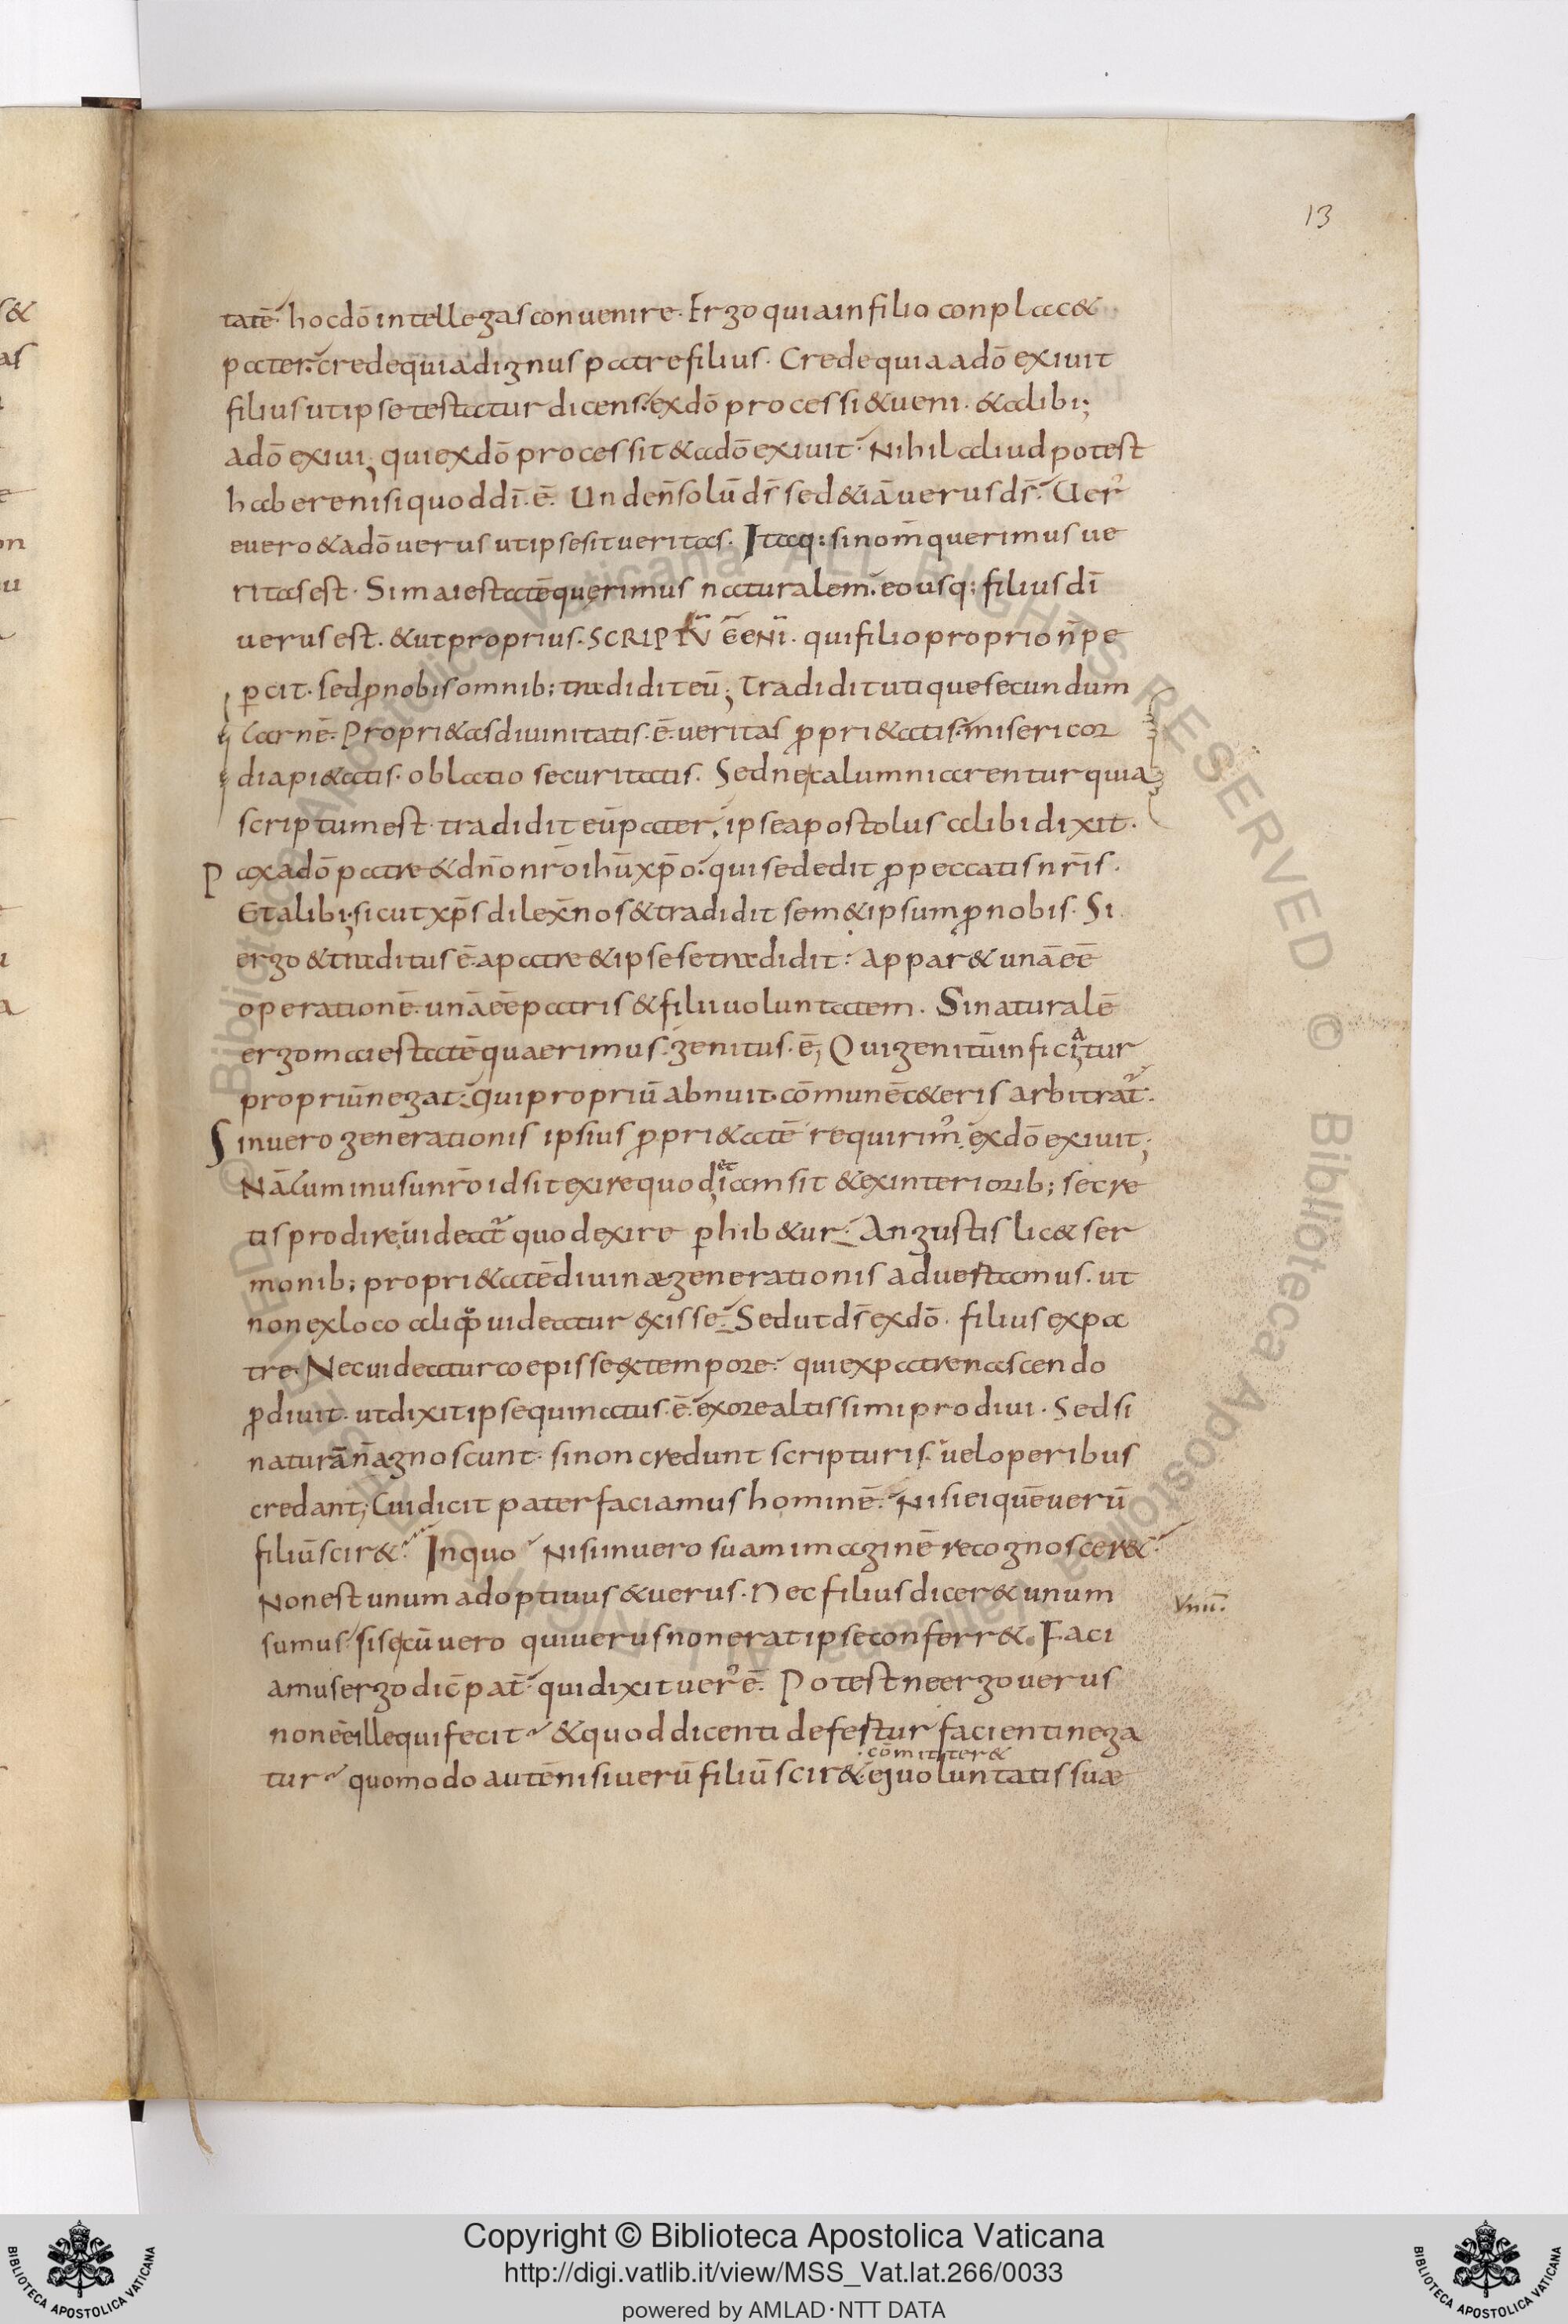 13
tatē. hoc dō intellegas convenire. Ergo quia in filio conplac&
pater. crede quia dignus patre filius. Crede quia a dō exivit
filius ut ipse testatur dicens. ex dō processi & veni. & alibi;
a dō exivi; qui ex dō processit & a dō exivit. Nihil aliud potest
habere nisi quod dī. ē. Unde n̄ solū ds̄ sed &iā verus ds̄. Uer'
e vero & a dō verus ut ipse sit veritas. Itaq: si nom̄ querimus ve
ritas est. Si maiestatē querimus naturalem. eo usq: filius dī
verus est. & ut proprius. SCRIPTŪ Ē ENĪ. qui filio proprio n̄ pe
ꝑcit. sed ꝓ nobis omnib; tradidit eū; Tradidit utique secundum
Carnē. Propri&as divinitatis. ē. veritas ꝓpri&atis. misericor
dia pi&atis. oblatio securitatis. Sed ne calumniarentur quia
scriptum est tradidit eū pater, ipse apostolus alibi dixit.
Pax a dō patre & dn̄o nr̄o ihū xp̄o. qui se dedit ꝓ peccatis nr̄is.
Et alibi; sicut xp̄s dilex̄ nos & tradidit sem&ipsum ꝓ nobis. Si
ergo & traditus ē a patre & ipse se tradidit. appar& unā eē
operationē. unā eē patris & filii voluntatem. Si naturalē
ergo maiestatē quaerimus. genitus. ē; Qui genitū inficiatur
propriū negat. qui propriū abnuit. cōmunē c&eris arbitrat'.
Sin vero generationis ipsius ꝓpri&atē requirim'. ex dō exivit;
Nā cum in usu nr̄o id sit exire quod etiam sit & ex interiorib; secre
tis prodire videat' quod exire ꝑhib&ur. Angustis lic& ser
monib; propri&atē divinae generationis advertamus. ut
non ex loco aliquo videatur exisse. Sed ut ds̄ ex dō. filius ex pa
tre. Nec videatur coepisse ex tempore. qui ex patre nascendo
ꝓdivit. ut dixit ipse qui natus. ē. ex ore altissimi prodivi. Sed si
naturā n̄ agnoscunt. si non credunt scripturis. vel operibus
credant; Cui dicit pater faciamus hominē. Nisi ei quē verū
filiū scir&. In quo Nisi in vero suam imaginē recognoscer&.
Non est unum adoptivus & verus. Nec filius dicer& unum
Vnū.
sumus. si se cū vero qui verus non erat ipse conferr&. Faci
amus ergo dic̄ pat̄. qui dixit ver' ē. Potestne ergo verus
non eē ille qui fecit & quod dicenti defertur facienti nega
cōmitter&
tur quomodo autē nisi verū filiū scir& ei voluntatis suae
Copyright © Biblioteca Apostolica Vaticana
http://digi.vatlib.it/view/MSS_Vat.lat.266/0033
powered by AMLAD·NTT DATA